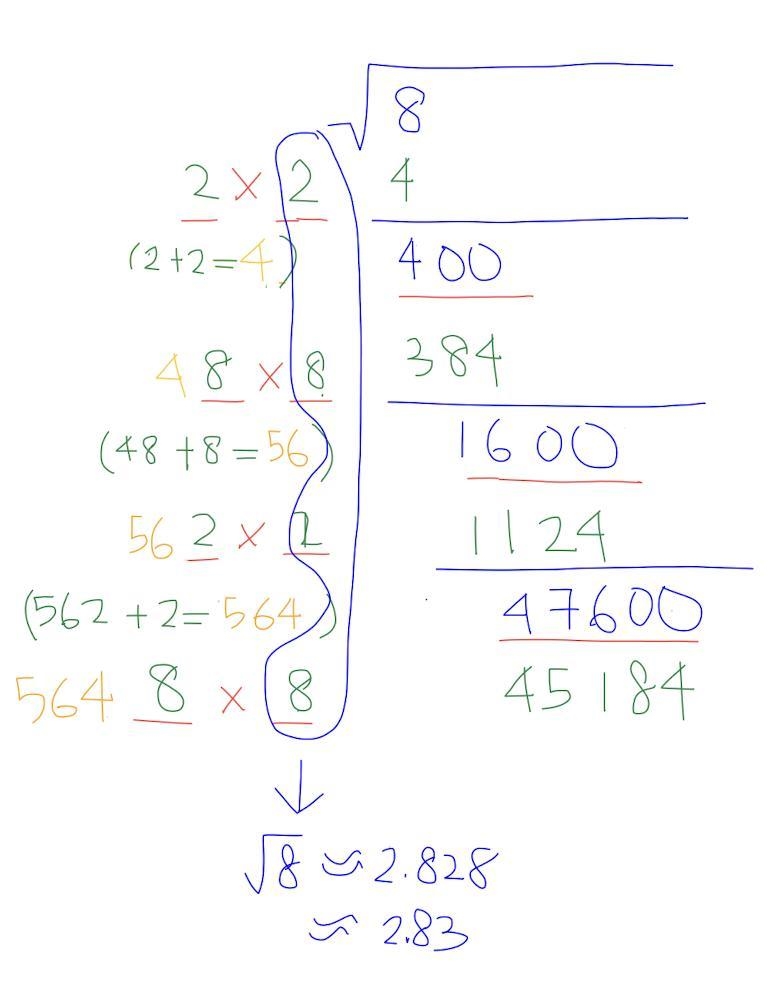 √8
2 × 2 4
(2+2=4) 400
4 8 × 8 384
(48+8=56) 1600
56 2 × 2 1124
(562+2=564) 47600
564 8 × 8 45184
↓
√8 ≈ 2.828
≈ 2.83